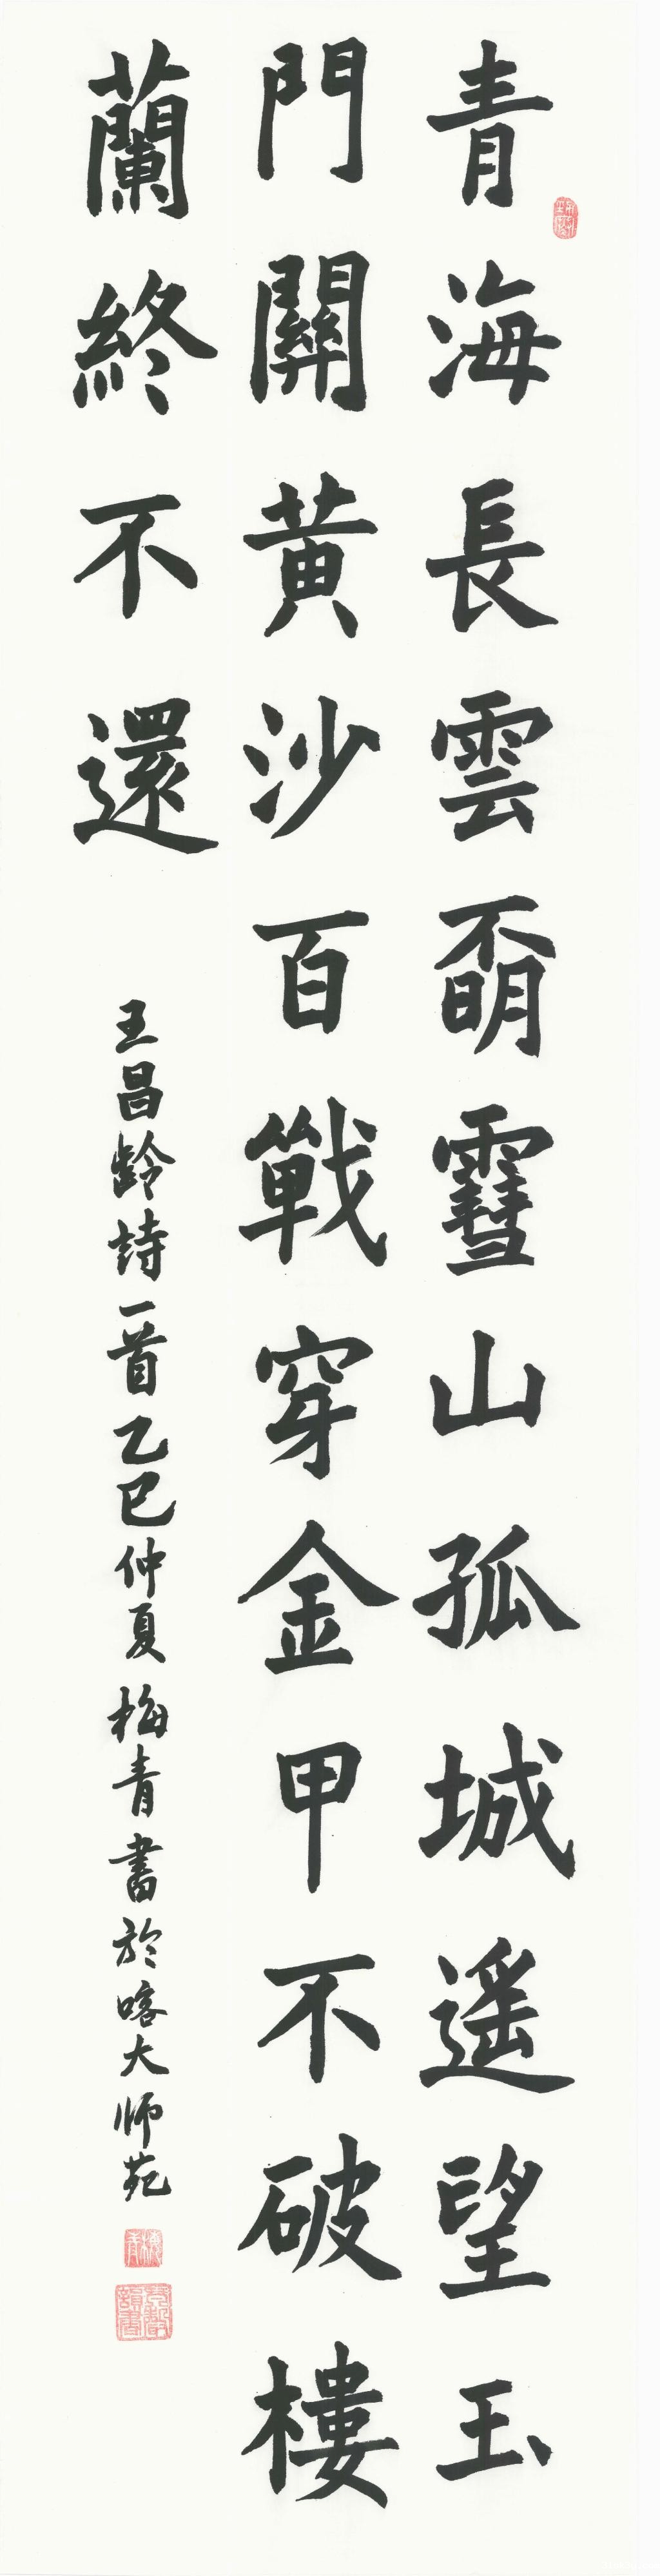 青海長雲暗雪山孤城遥望玉
門關黄沙百戰穿金甲不破樓
蘭終不還
王昌齡詩一首乙巳仲夏梅青書於喀大师苑